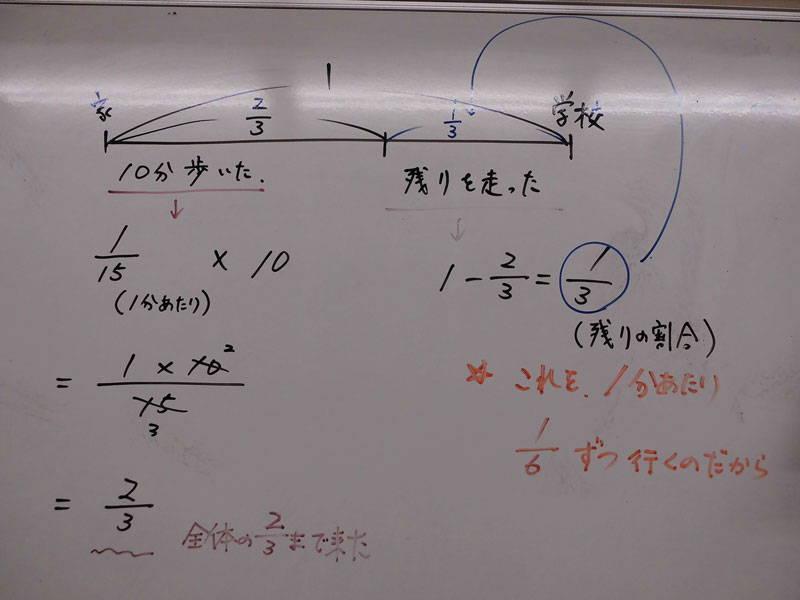 1
家 2/3 1/3 学校
10分歩いた. 残りを走った
↓ ↓
1/15 × 10
(1分あたり)
1 - 2/3 = 1/3
(残りの割合)
= 1 × 10 2 / 15 3
☆ これを、1分あたり
1/6 ずつ行くのだから
= 2/3
全体の2/3まで来た